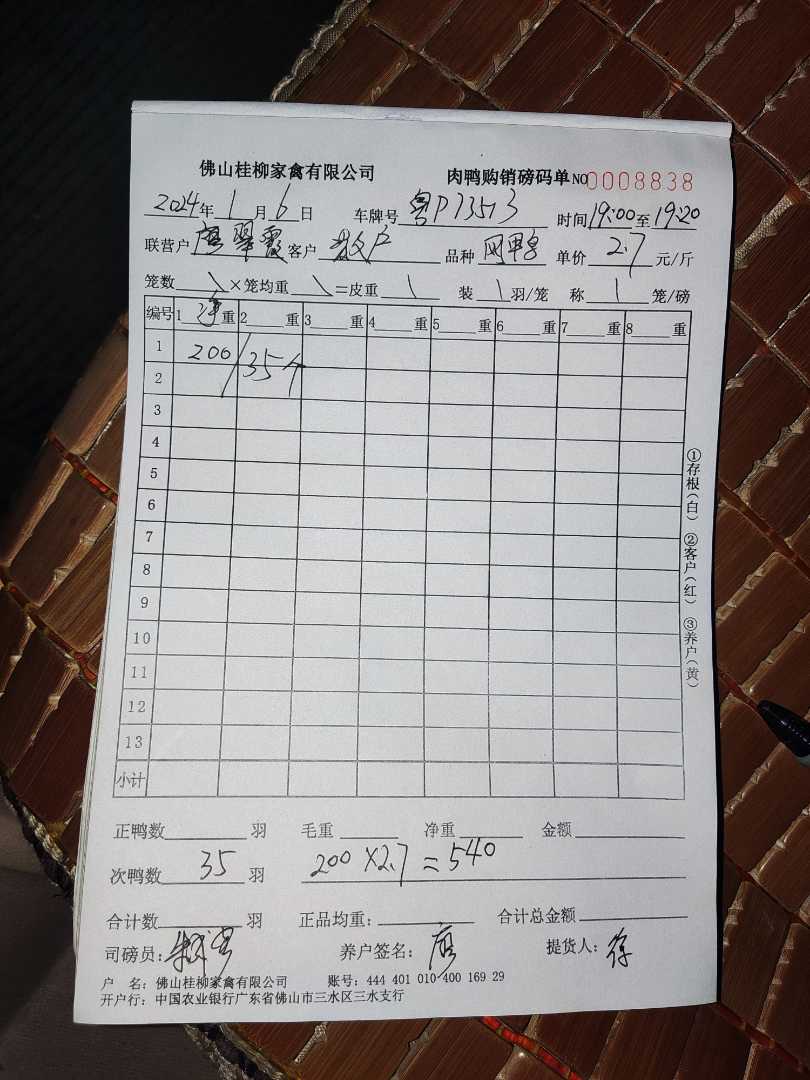 佛山桂柳家禽有限公司 肉鸭购销磅码单 NO 0008838
2024年 1月 6日 车牌号 粤P13513 时间 19:00 至 19:20
联营户 廖翠霞 客户 散户 品种 单价 2.7 元/斤
笼数 \ ×笼均重 \ =皮重 \ 装 \ 羽/笼 称 \ 笼/磅
编号 1 净 重 2 重 3 重 4 重 5 重 6 重 7 重 8 重
1 200/35个
2
3
4
5
6
7
8
9
10
11
12
13
小计
①存根(白) ②客户(红) ③养户(黄)
正鸭数 羽 毛重 净重 金额
次鸭数 35 羽 200×2.7=540
合计数 羽 正品均重: 合计总金额
司磅员: 养户签名: 廖 提货人:
户 名: 佛山桂柳家禽有限公司 账号: 444 401 010 400 169 29
开户行: 中国农业银行广东省佛山市三水区三水支行